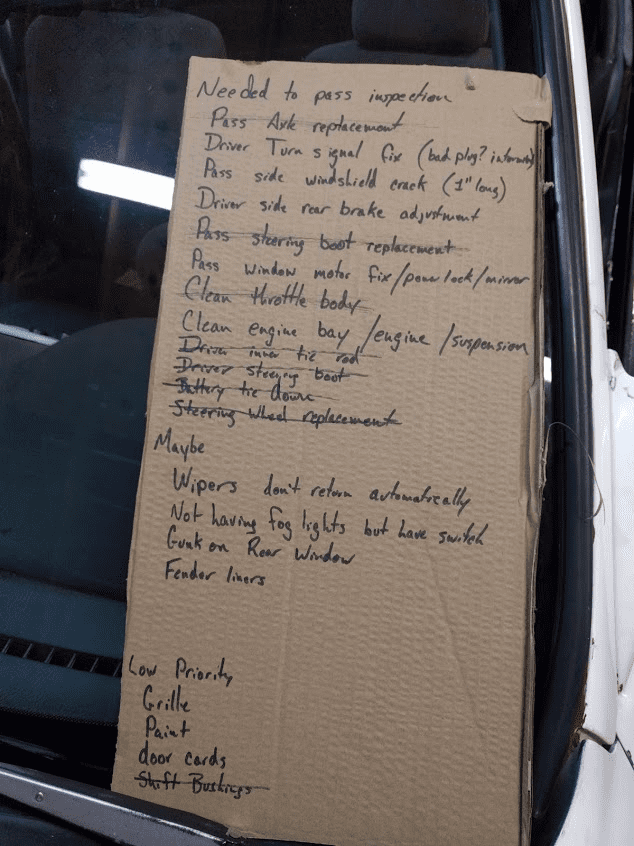 Needed to pass inspection
Pass Axle replacement
Driver Turn signal fix (bad plug? internal)
Pass side windshield crack (1" long)
Driver side rear brake adjustment
Pass steering boot replacement
Pass window motor fix/power lock/mirror
Clean throttle body
Clean engine bay /engine /suspension
Driver inner tie rod
Driver steering boot
Battery tie down
Steering Wheel replacement
Maybe
Wipers don't return automatically
Not having fog lights but have switch
Gunk on Rear Window
Fender liners
Low Priority
Grille
Paint
door cards
Shift Bushings